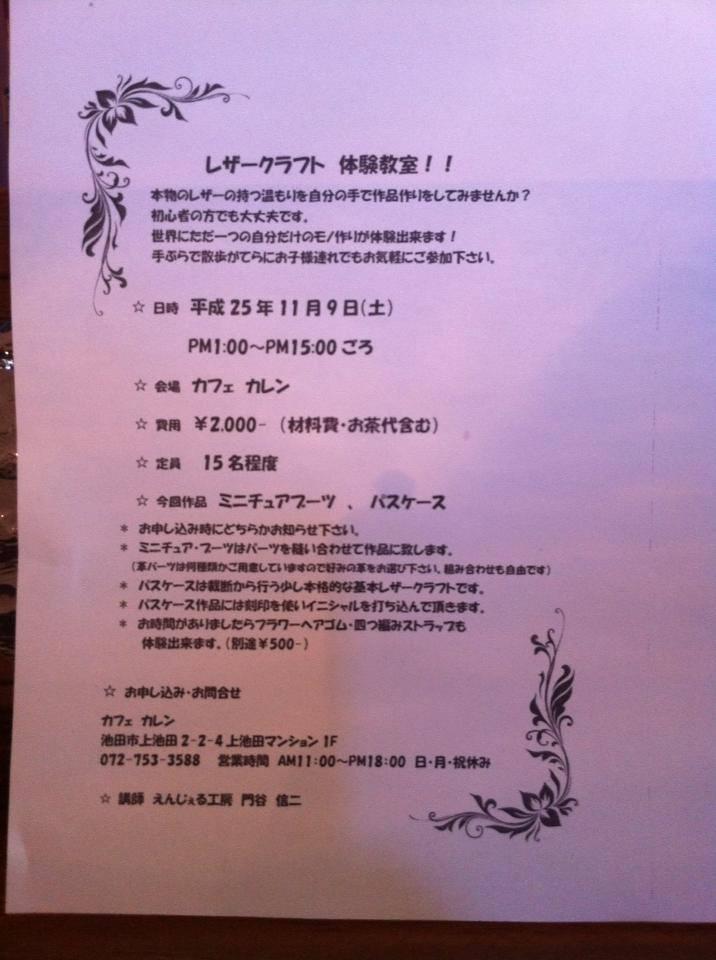 レザークラフト 体験教室！！
本物のレザーの持つ温もりを自分の手で作品作りをしてみませんか？
初心者の方でも大丈夫です。
世界にただ一つの自分だけのモノ作りが体験出来ます！
手ぶらで散歩がてらにお子様連れでもお気軽にご参加下さい。
☆ 日時 平成25年11月9日（土）
PM1:00～PM15:00ごろ
☆ 会場 カフェ カレン
☆ 費用 ￥2.000-（材料費・お茶代含む）
☆ 定員 15名程度
☆ 今回作品 ミニチュアブーツ 、 パスケース
＊ お申し込み時にどちらかお知らせ下さい。
＊ ミニチュア・ブーツはパーツを縫い合わせて作品に致します。
（革パーツは何種類かご用意していますので好みの革をお選び下さい。組み合わせも自由です）
＊ パスケースは裁断から行う少し本格的な基本レザークラフトです。
＊ パスケース作品には刻印を使いイニシャルを打ち込んで頂きます。
＊ お時間がありましたらフラワーヘアゴム・四つ編みストラップも
体験出来ます。（別途￥500-）
☆ お申し込み・お問合せ
カフェ カレン
池田市上池田2-2-4上池田マンション1F
072-753-3588 営業時間 AM11:00～PM18:00 日・月・祝休み
☆ 講師 えんじぇる工房 門谷 信二